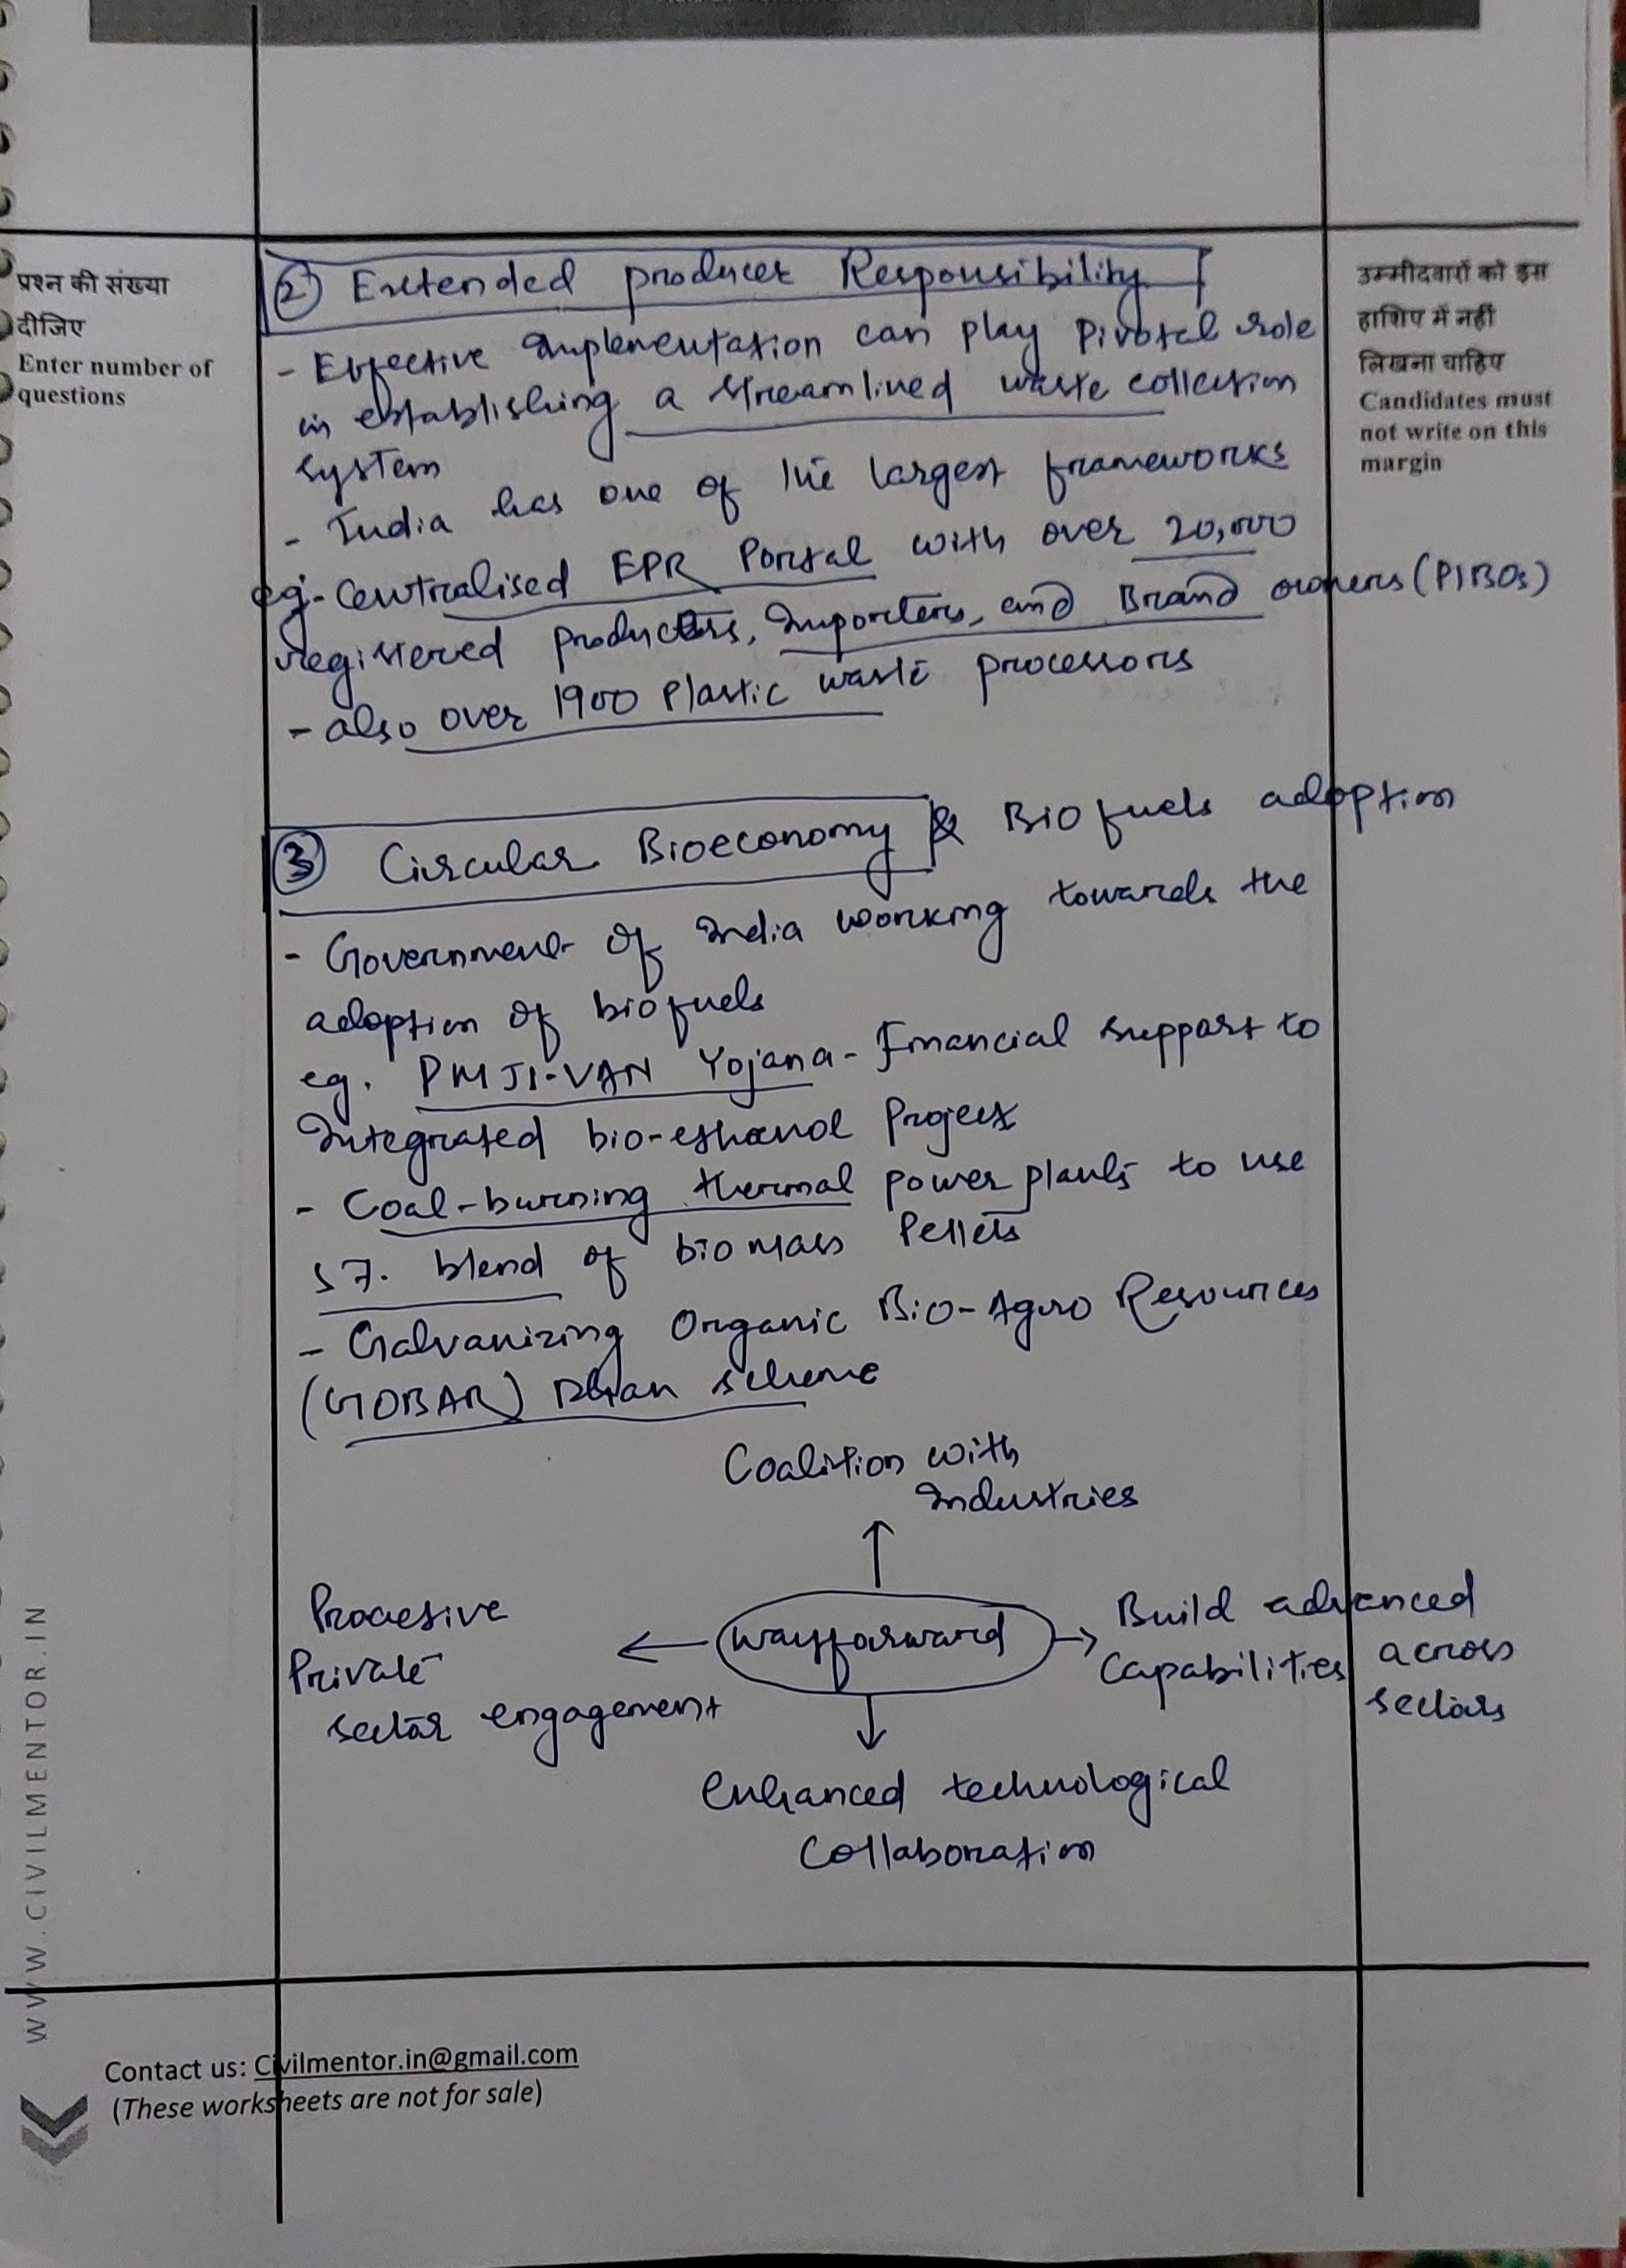 प्रश्न की संख्या
दीजिए
Enter number of
questions
उम्मीदवारों को इस
हाशिए में नहीं
लिखना चाहिए
Candidates must
not write on this
margin
② Extended producer Responsibility
- Effective Implementation can play Pivotal role
in establishing a streamlined waste collection
system
- India has one of the largest frameworks
eg- Centralised EPR Portal with over 20,000
registered producers, Importers, and Brand owners (PIBOs)
- also over 1900 Plastic waste processors
③ Circular Bioeconomy & Bio fuels adoption
- Government of India working towards the
adoption of biofuels
eg. PM JI-VAN Yojana - Financial support to
Integrated bio-ethanol Project
- Coal-burning thermal power plants to use
5%. blend of biomass Pellets
- Galvanizing Organic Bio-Agro Resources
(GOBAR) Dhan scheme
Coalition with
Industries
Proactive
Private
sector engagement
way forward
Build advanced
Capabilities across
sectors
enhanced technological
Collaboration
WWW.CIVILMENTOR.IN
Contact us: Civilmentor.in@gmail.com
(These worksheets are not for sale)